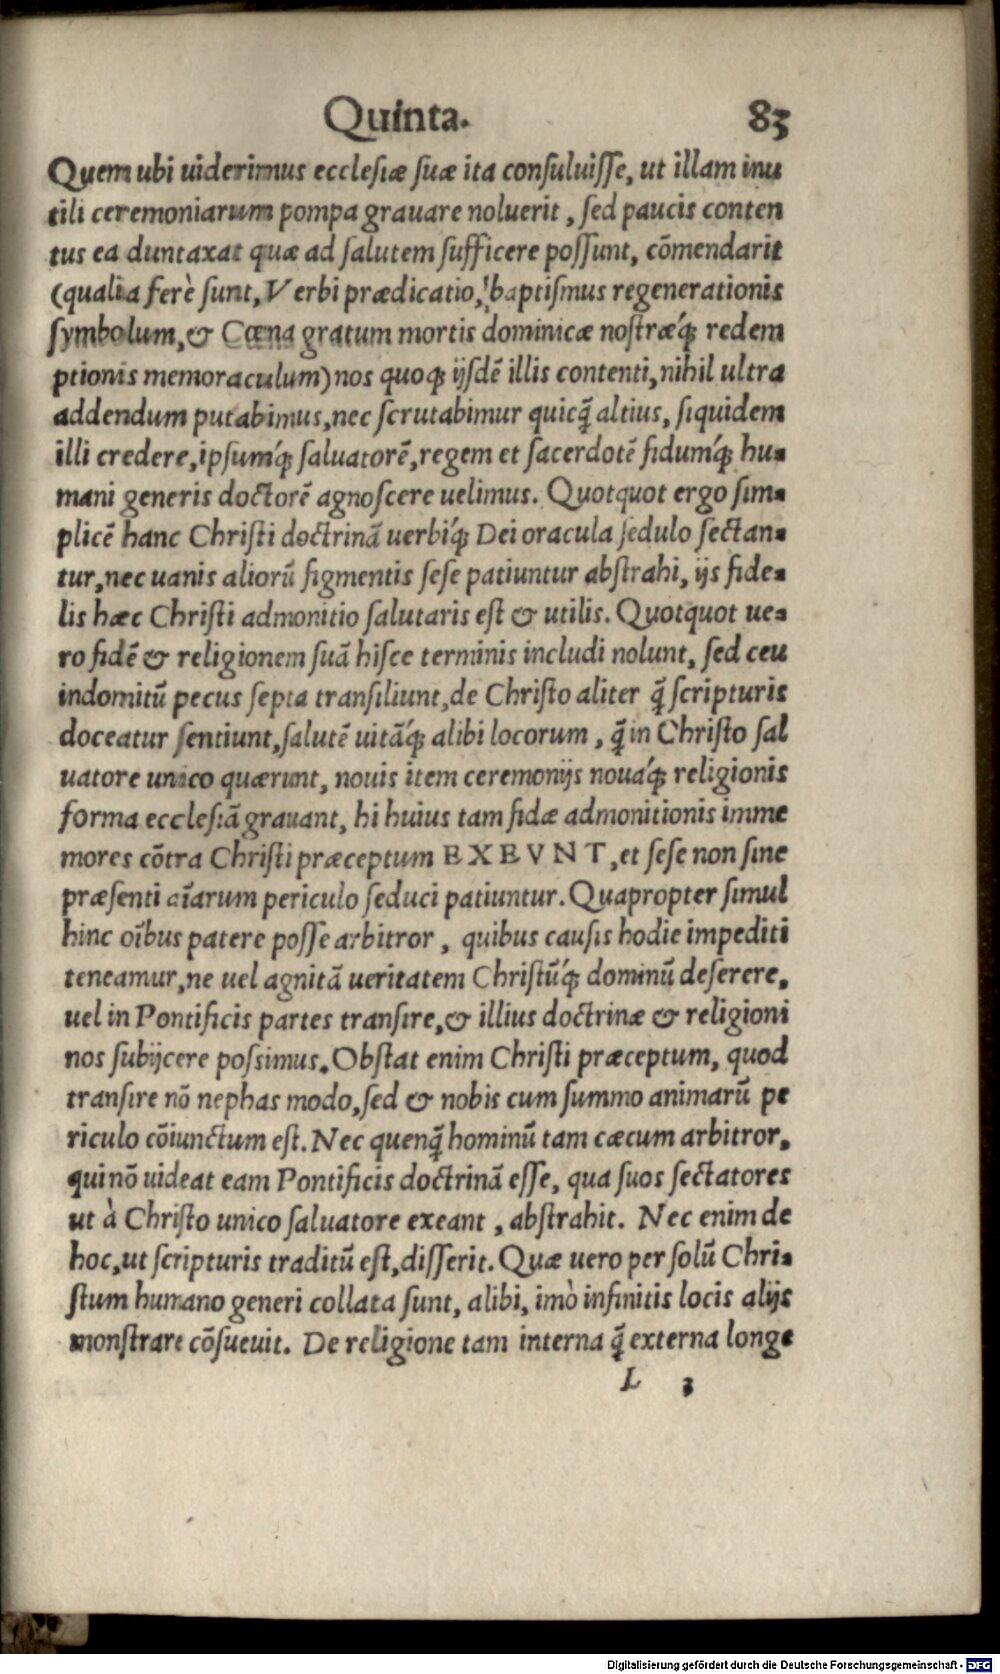 Quinta. 83
Quem ubi uiderimus ecclesiæ suæ ita consuluisse, ut illam inu
tili ceremoniarum pompa grauare noluerit, sed paucis conten
tus ea duntaxat quæ ad salutem sufficere possunt, cõmendarit
(qualia ferè sunt, Verbi prædicatio, baptismus regenerationis
symbolum, & Cœna gratum mortis dominicæ nostræq́; redem
ptionis memoraculum) nos quoq; ijsdẽ illis contenti, nihil ultra
addendum putabimus, nec scrutabimur quicq̃ altius, siquidem
illi credere, ipsumq́; saluatorẽ, regem et sacerdotẽ fidumq́; hu-
mani generis doctorẽ agnoscere uelimus. Quotquot ergo sim-
plicẽ hanc Christi doctrinã uerbiq́; Dei oracula sedulo sectan-
tur, nec uanis aliorũ figmentis sese patiuntur abstrahi, ijs fide-
lis hæc Christi admonitio salutaris est & utilis. Quotquot ue-
ro fidẽ & religionem suã hisce terminis includi nolunt, sed ceu
indomitũ pecus septa transiliunt, de Christo aliter q̃ scripturis
doceatur sentiunt, salutẽ uitãq́; alibi locorum, q̃ in Christo sal
uatore unico quærunt, nouis item ceremonijs nouaq́; religionis
forma ecclesiã grauant, hi huius tam fidæ admonitionis imme
mores cõtra Christi præceptum EXEVNT, et sese non sine
præsenti aĩarum periculo seduci patiuntur. Quapropter simul
hinc oĩbus patere posse arbitror, quibus causis hodie impediti
teneamur, ne uel agnitã ueritatem Christũq́; dominũ deserere,
uel in Pontificis partes transire, & illius doctrinæ & religioni
nos subijcere possimus. Obstat enim Christi præceptum, quod
transire nõ nephas modo, sed & nobis cum summo animarũ pe
riculo cõiunctum est. Nec quenq̃ hominũ tam cæcum arbitror,
qui nõ uideat eam Pontificis doctrinã esse, qua suos sectatores
ut à Christo unico saluatore exeant, abstrahit. Nec enim de
hoc, ut scripturis traditũ est, disserit. Quæ uero per solũ Chri-
stum humano generi collata sunt, alibi, imò infinitis locis alijs
monstrare cõsueuit. De religione tam interna q̃ externa longe
L 3
Digitalisierung gefördert durch die Deutsche Forschungsgemeinschaft - DFG